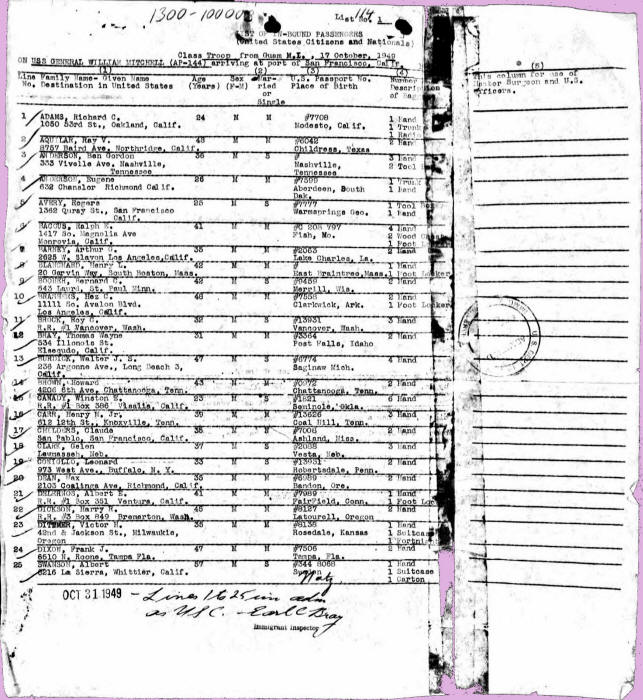 1300-10000
List No. 1
114
LIST OF IN-BOUND PASSENGERS
(United States Citizens and Nationals)
Class Troop from Guam M.I., 17 October, 1949
ON USS GENERAL WILLIAM MITCHELL (AP-144) arriving at port of San Francisco, Calif.
(1) (2) (3) (4) (5)
Line Family Name- Given Name Age Sex Mar- U.S. Passport No. Number
No. Destination in United States (Years) (F-M) ried Place of Birth Description
or of Bag
Single
column for use of
Surgeon and U.S.
officers.
1 ADAMS, Richard C. 24 M M #7708 1 Hand
1050 53rd St., Oakland, Calif. Modesto, Calif. 1 Trunk
1 Radio
2 AQUILAR, Ray V. 48 M M #6042 2 Hand
8757 Baird Ave. Northridge, Calif. Childress, Texas
3 ANDERSON, Ben Gordon 36 M S # 3 Hand
333 Vivelle Ave. Nashville, Nashville, 2 Tool
Tennessee Tennessee
4 ANDERSON, Eugene 26 M M #7599 1 Trunk
632 Chansler Richmond Calif. Aberdeen, South 1 Hand
Dak.
5 AVERY, Rogers 25 M S #7779 1 Tool Box
1362 Quray St., San Francisco Warmsprings Geo. 1 Hand
Calif.
6 BACCUS, Ralph E. 41 M M 4 Hand
1417 So. Magnolia Ave Fish, Mo. 2 Wood
Monrovia, Calif. 1 Foot
7 BARNEY, Arthur G. 35 M M #2053 2 Hand
2625 W. Slavon Los Angeles, Calif. Lake Charles, La.
8 BLANCHARD, Henry L. 42 M M # 1 Hand
20 Gorvin Way, South Boston, Mass. East Braintree, Mass. 1 Foot Locker
9 BOOHER, Bernard C. 42 M S #9459 2 Hand
643 Laurd, St. Paul Minn. Merrill, Wis.
10 Hez C. 48 M M #7558 2 Hand
11111 So. Avalon Blvd. Clarkwick, Ark. 1 Foot Locker
Los Angeles, Calif.
11 BROCK, Roy C. 32 M S #13931 3 Hand
R.R. #1 Vancover, Wash. Vancover, Wash.
12 BRAY, Thomas Wayne 31 M M #3364 2 Hand
534 Illonois St. Post Falls, Idaho
Elsequdo, Calif.
13 BURDICK, Walter J. S. 47 M S #6774 4 Hand
236 Argonne Ave., Long Beach 3, Saginaw Mich.
Calif.
14 BROWN, Howard 43 M M #0972 2 Hand
4206 6th Ave. Chattanooga, Tenn. Chattanooga, Tenn.
15 CANADY, Winston E. 23 M S #1821 6 Hand
R.R. #1 Box 386 Visalia, Calif. Seminole, Okla.
16 CARR, Henry N. Jr. 39 M M #13626 3 Hand
612 12th St., Knoxville, Tenn. Coal Hill, Tenn.
17 CHILDERS, Claude 38 M S #7006 2 Hand
San Pablo, San Francisco, Calif. Ashland, Miss.
18 CLARK, Gelen 37 M S #2088 3 Hand
Neb. Vesta, Neb.
19 Leonard 33 M S #13931 2 Hand
973 West Ave., Buffalo, N. Y. Robertsdale, Penn.
20 DEAN, Max 35 M M #6989 2 Hand
2103 Coalinga Ave, Richmond, Calif. Bandon, Ore.
21 Albert E. 41 M M #7989 1 Hand
R.R. #1 Box 351 Ventura, Calif. FairField, Conn. 1 Foot Loc
22 DICKSON, Harry R. 45 M M #8127 2 Hand
R.R. #3 Box 849 Bremerton, Wash. Latourell, Oregon
23 DITTMER, Victor H. 35 M M #8138 1 Hand
42nd & Jackson St., Milwaukie, Rosedale, Kansas 1 Suitcas
Oregon 1
24 DIXON, Frank J. 47 M M #7506 2 Hand
6610 N. Roone, Tampa Fla. Tampa, Fla.
25 SWANSON, Albert 57 M S #344 8068 1 Hand
6216 La Sierra, Whittier, Calif. Sweden 1 Suitcase
1 Carton
OCT 31 1949 - Lines 1 to 25 inc adm
as USC - Earl C Bray
Immigrant Inspector